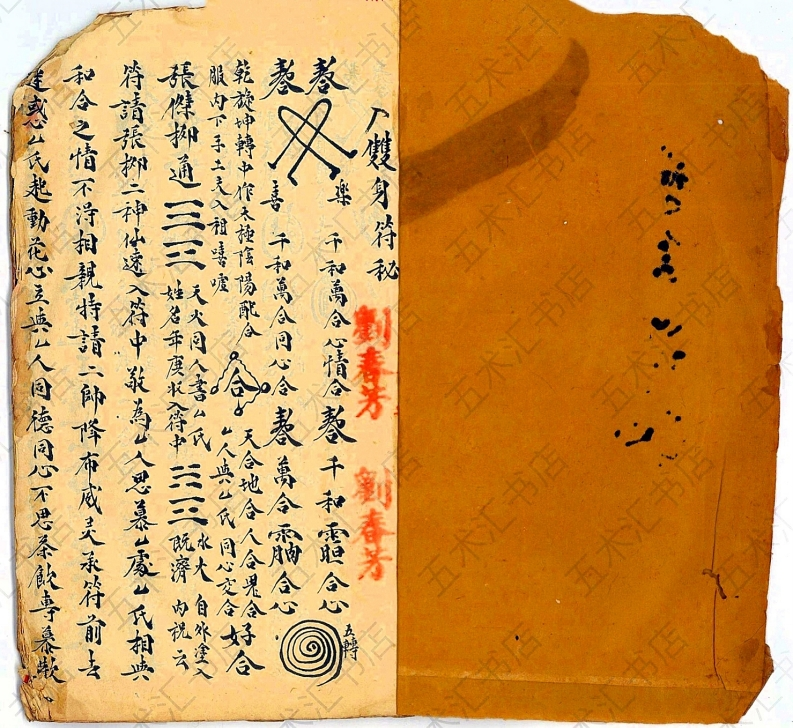 雙身符秘
劉春芳
劉春芳
樂 千和萬合心情合 千和 合心
善 千和萬合同心合 萬合 合心
五轉
乾旋坤轉中作太極陰陽配合
合
天合地合人合鬼合
服內下手 入
ㄙ人與ㄙ氏同心交合
好合
張傑柳通
天火同人書ㄙ氏
姓名年庚收入符中
水火
既濟
自外塗入
內祝云
符請張柳二神仙速入符中敬為ㄙ人思慕ㄙ處ㄙ氏相與
和合之情不淂相親特請二帥降布威灵承符前去
迷惑ㄙ氏起動花心立與ㄙ人同德同心不思茶飲專慕歡
五木汇书店